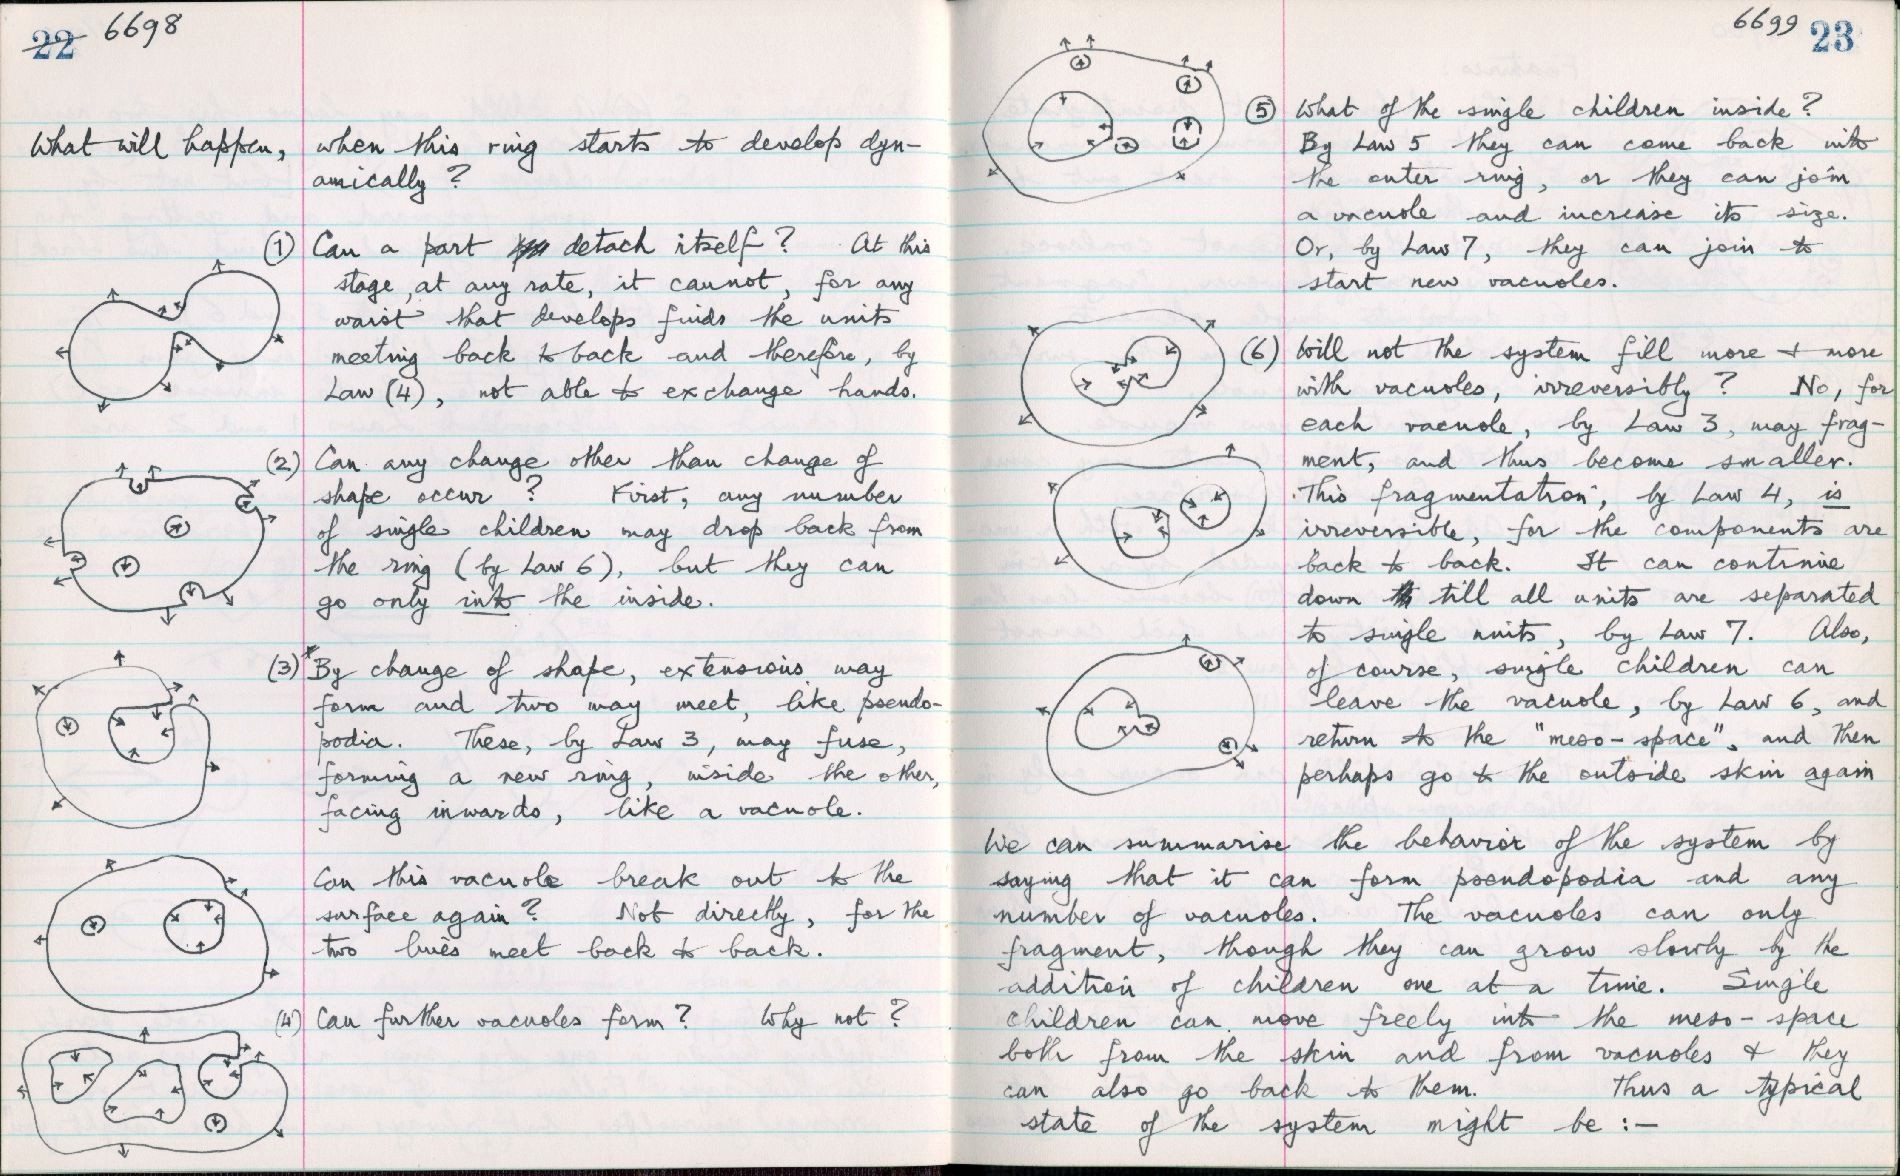 22 6698
What will happen, when this ring starts to develop dyn-
amically?
(1) Can a part detach itself? At this
stage, at any rate, it cannot, for any
waist that develops finds the units
meeting back to back and therefore, by
Law (4), not able to exchange hands.
(2) Can any change other than change of
shape occur? First, any number
of single children may drop back from
the ring (by Law 6), but they can
go only into the inside.
(3) By change of shape, extensions may
form and two may meet, like pseudo-
podia. These, by Law 3, may fuse,
forming a new ring, inside the other,
facing inwards, like a vacuole.
Can this vacuole break out to the
surface again? Not directly, for the
two lines meet back to back.
(4) Can further vacuoles form? Why not?
6699 23
(5) What of the single children inside?
By Law 5 they can come back into
the outer ring, or they can join
a vacuole and increase its size.
Or, by Law 7, they can join to
start new vacuoles.
(6) Will not the system fill more + more
with vacuoles, irreversibly? No, for
each vacuole, by Law 3, may frag-
ment, and thus become smaller.
This fragmentation, by Law 4, is
irreversible, for the components are
back to back. It can continue
down till all units are separated
to single units, by Law 7. Also,
of course, single children can
leave the vacuole, by Law 6, and
return to the "meso-space", and then
perhaps go to the outside skin again
We can summarise the behavior of the system by
saying that it can form pseudopodia and any
number of vacuoles. The vacuoles can only
fragment, though they can grow slowly by the
addition of children one at a time. Single
children can move freely into the meso-space
both from the skin and from vacuoles + they
can also go back to them. Thus a typical
state of the system might be :—